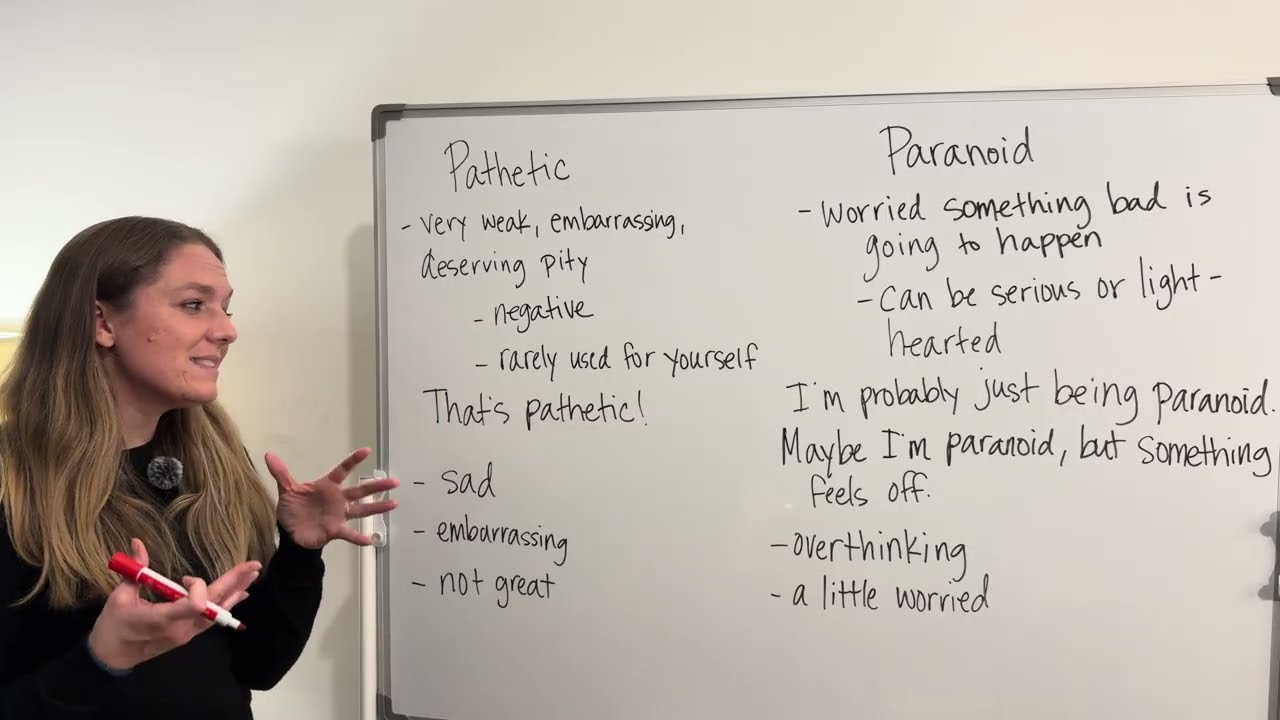 Pathetic
- very weak, embarrassing,
deserving pity
- negative
- rarely used for yourself
That's pathetic!
- sad
- embarrassing
- not great
Paranoid
- worried something bad is
going to happen
- can be serious or light-
hearted
I'm probably just being paranoid.
Maybe I'm paranoid, but something
feels off.
- overthinking
- a little worried